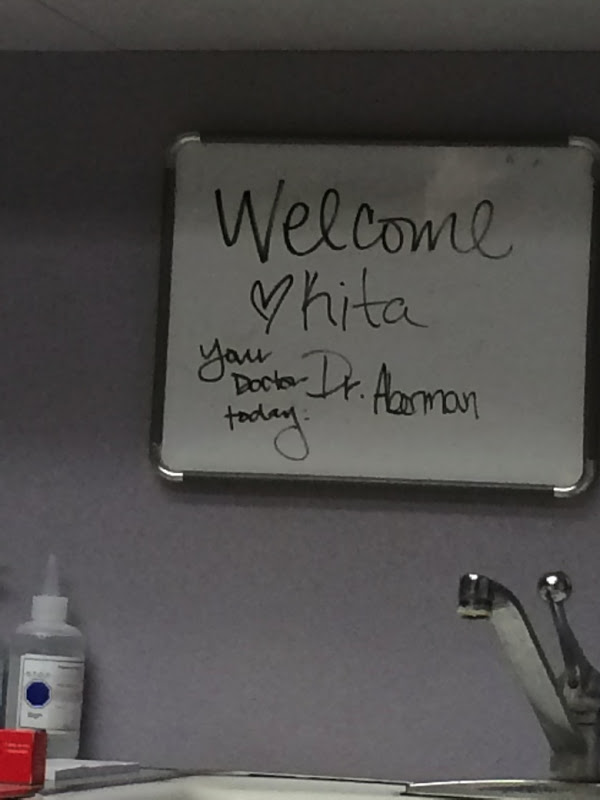 Welcome
♡ Kita
your
Doctor Dr. Aborman
today: